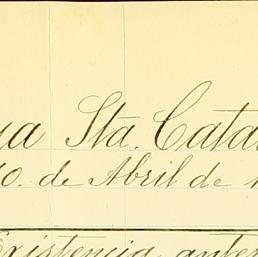 ua Sta. Cata
0. de Abril de 1
Existencia anter